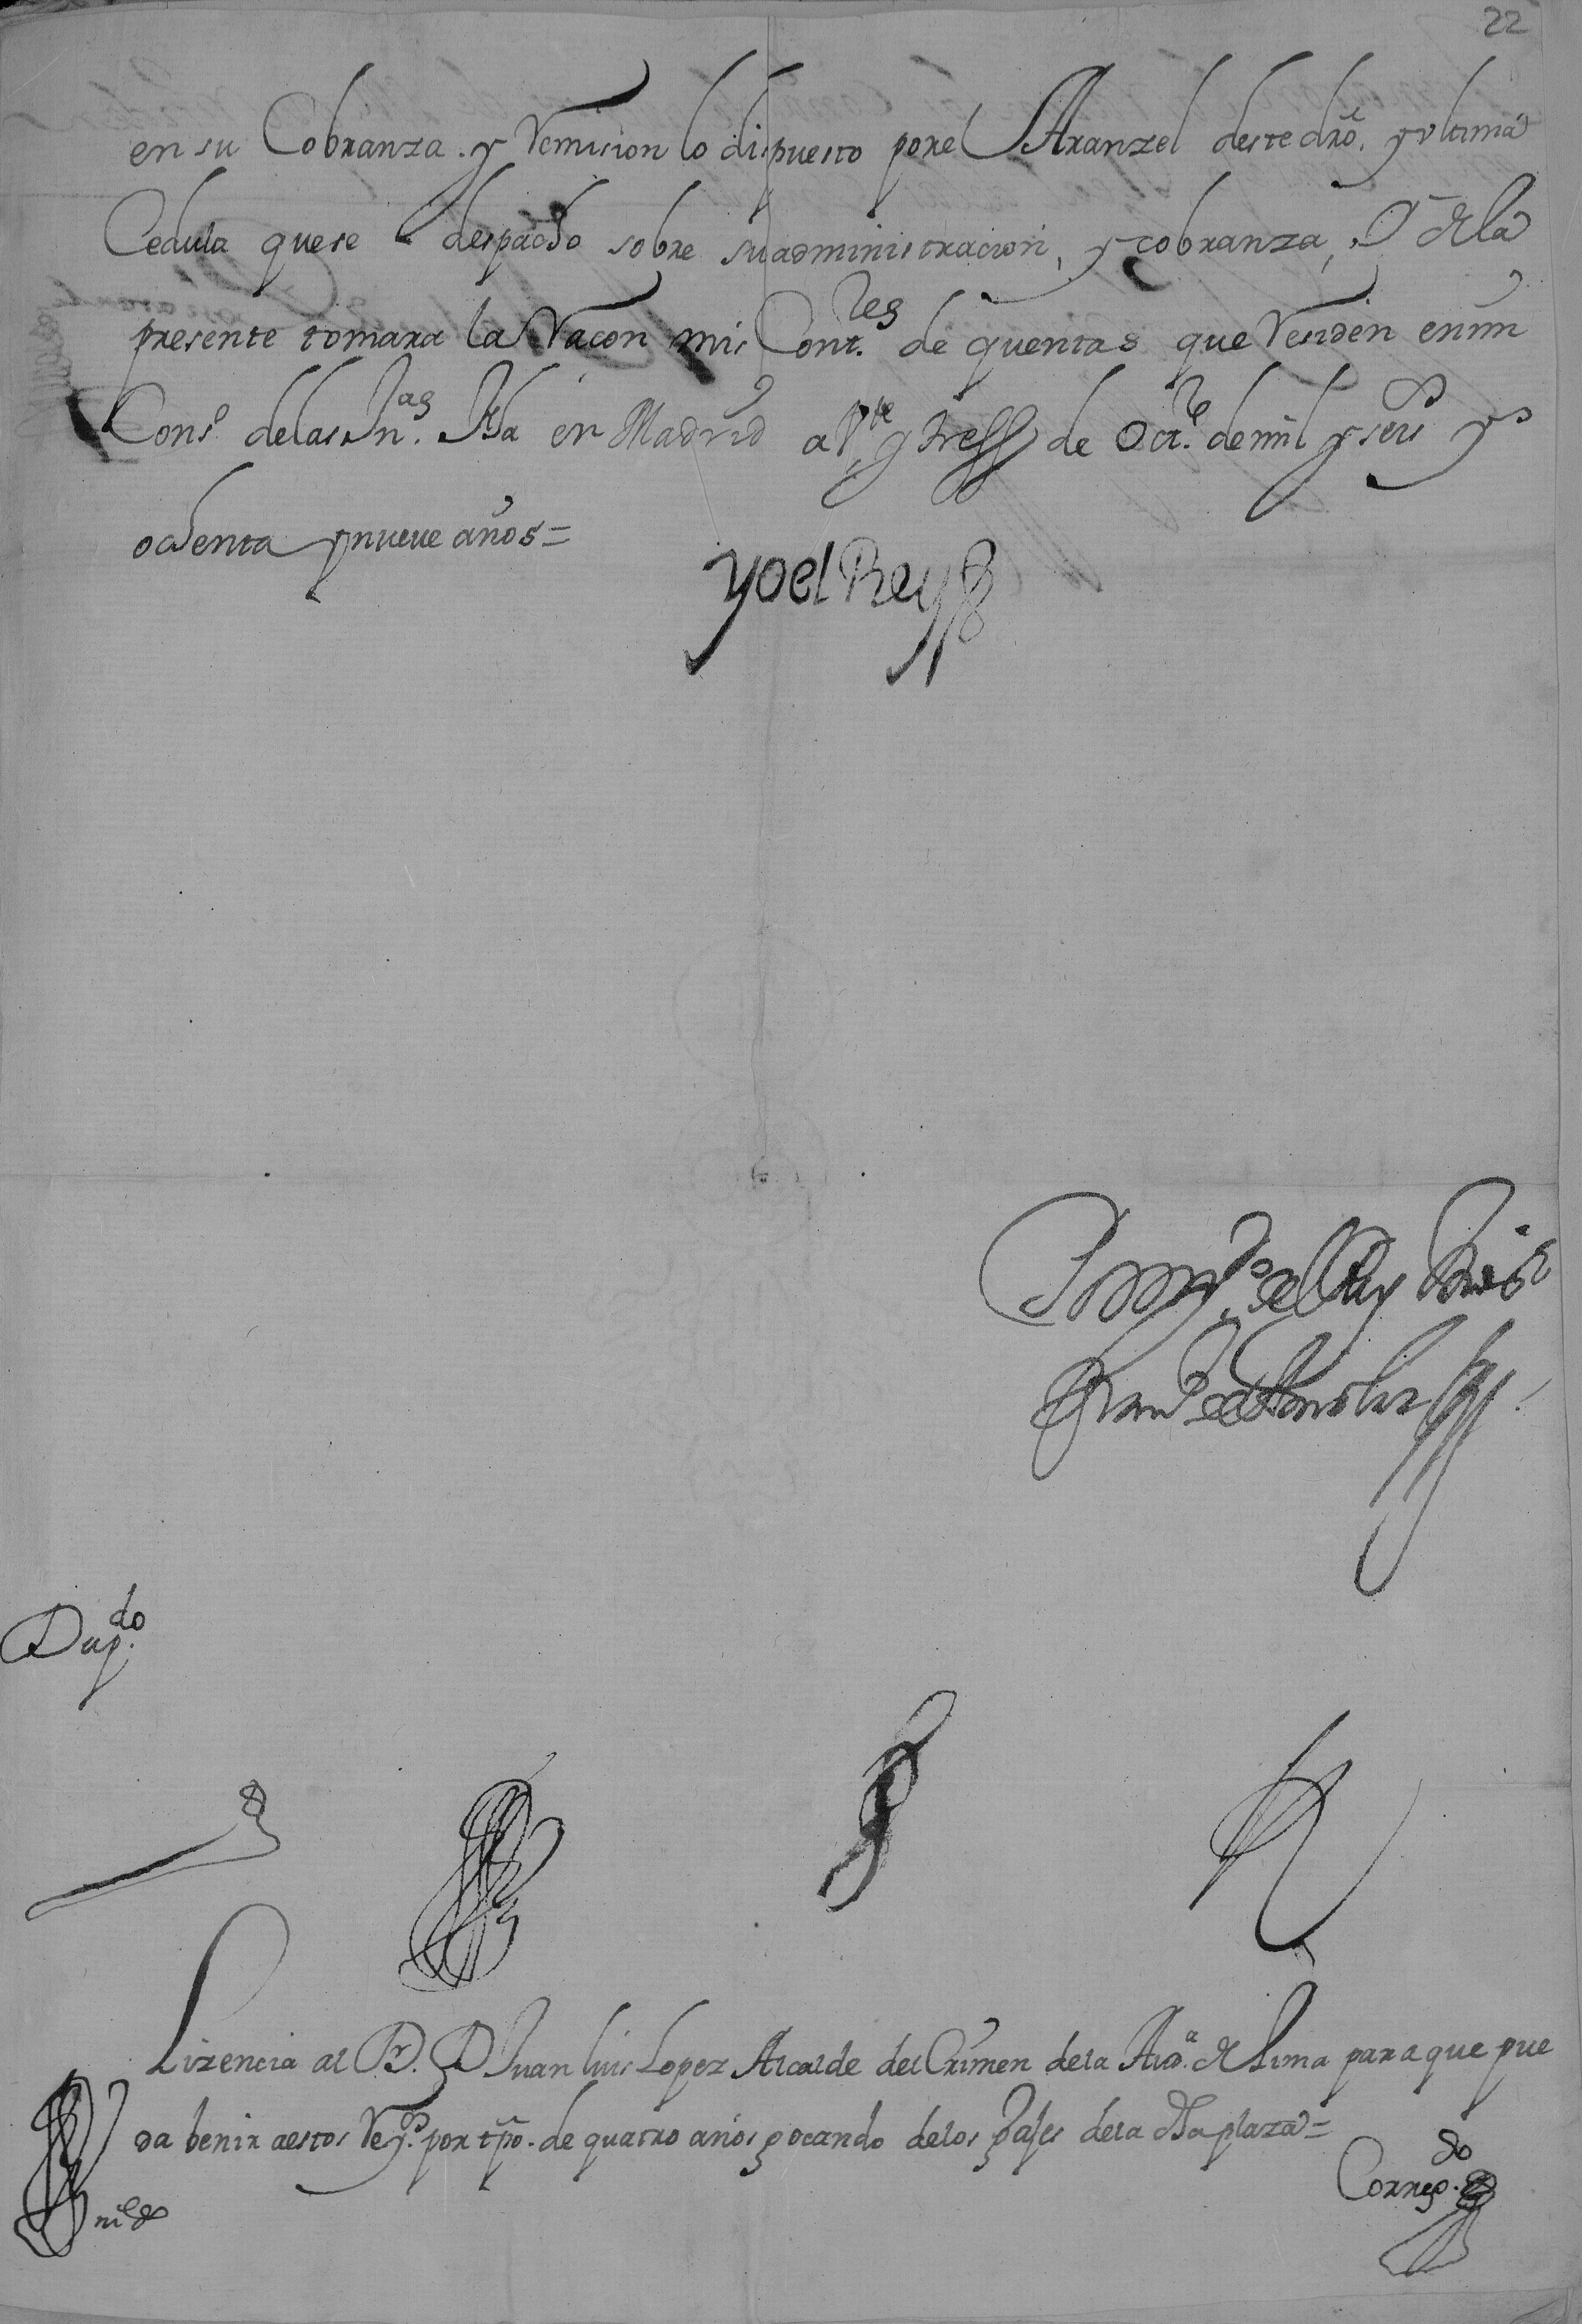 22
en su Cobranza. y Remision lo dispuesto por el Aranzel deste dr̃o. y vltima
Cedula que se despacho sobre su administracion, y cobranza, Y de la
presente tomara la Raçon mis Cont.res de quentas que Residen en mi
Cons.o de las In.as fha en Madrid a V.te y tress de Oct.re de mil y seis.os y
ochenta y nueve años =
Yo el Rey
Por m.do del Rey
Dup.do
Lizencia al Dr. D Juan luis Lopez Alcalde del Crimen de la Au.a de Lima para que pue
da benir a estos Rey.os por tpo. de quatro años gocando de los gajes de la dha plaza =
Correg.do